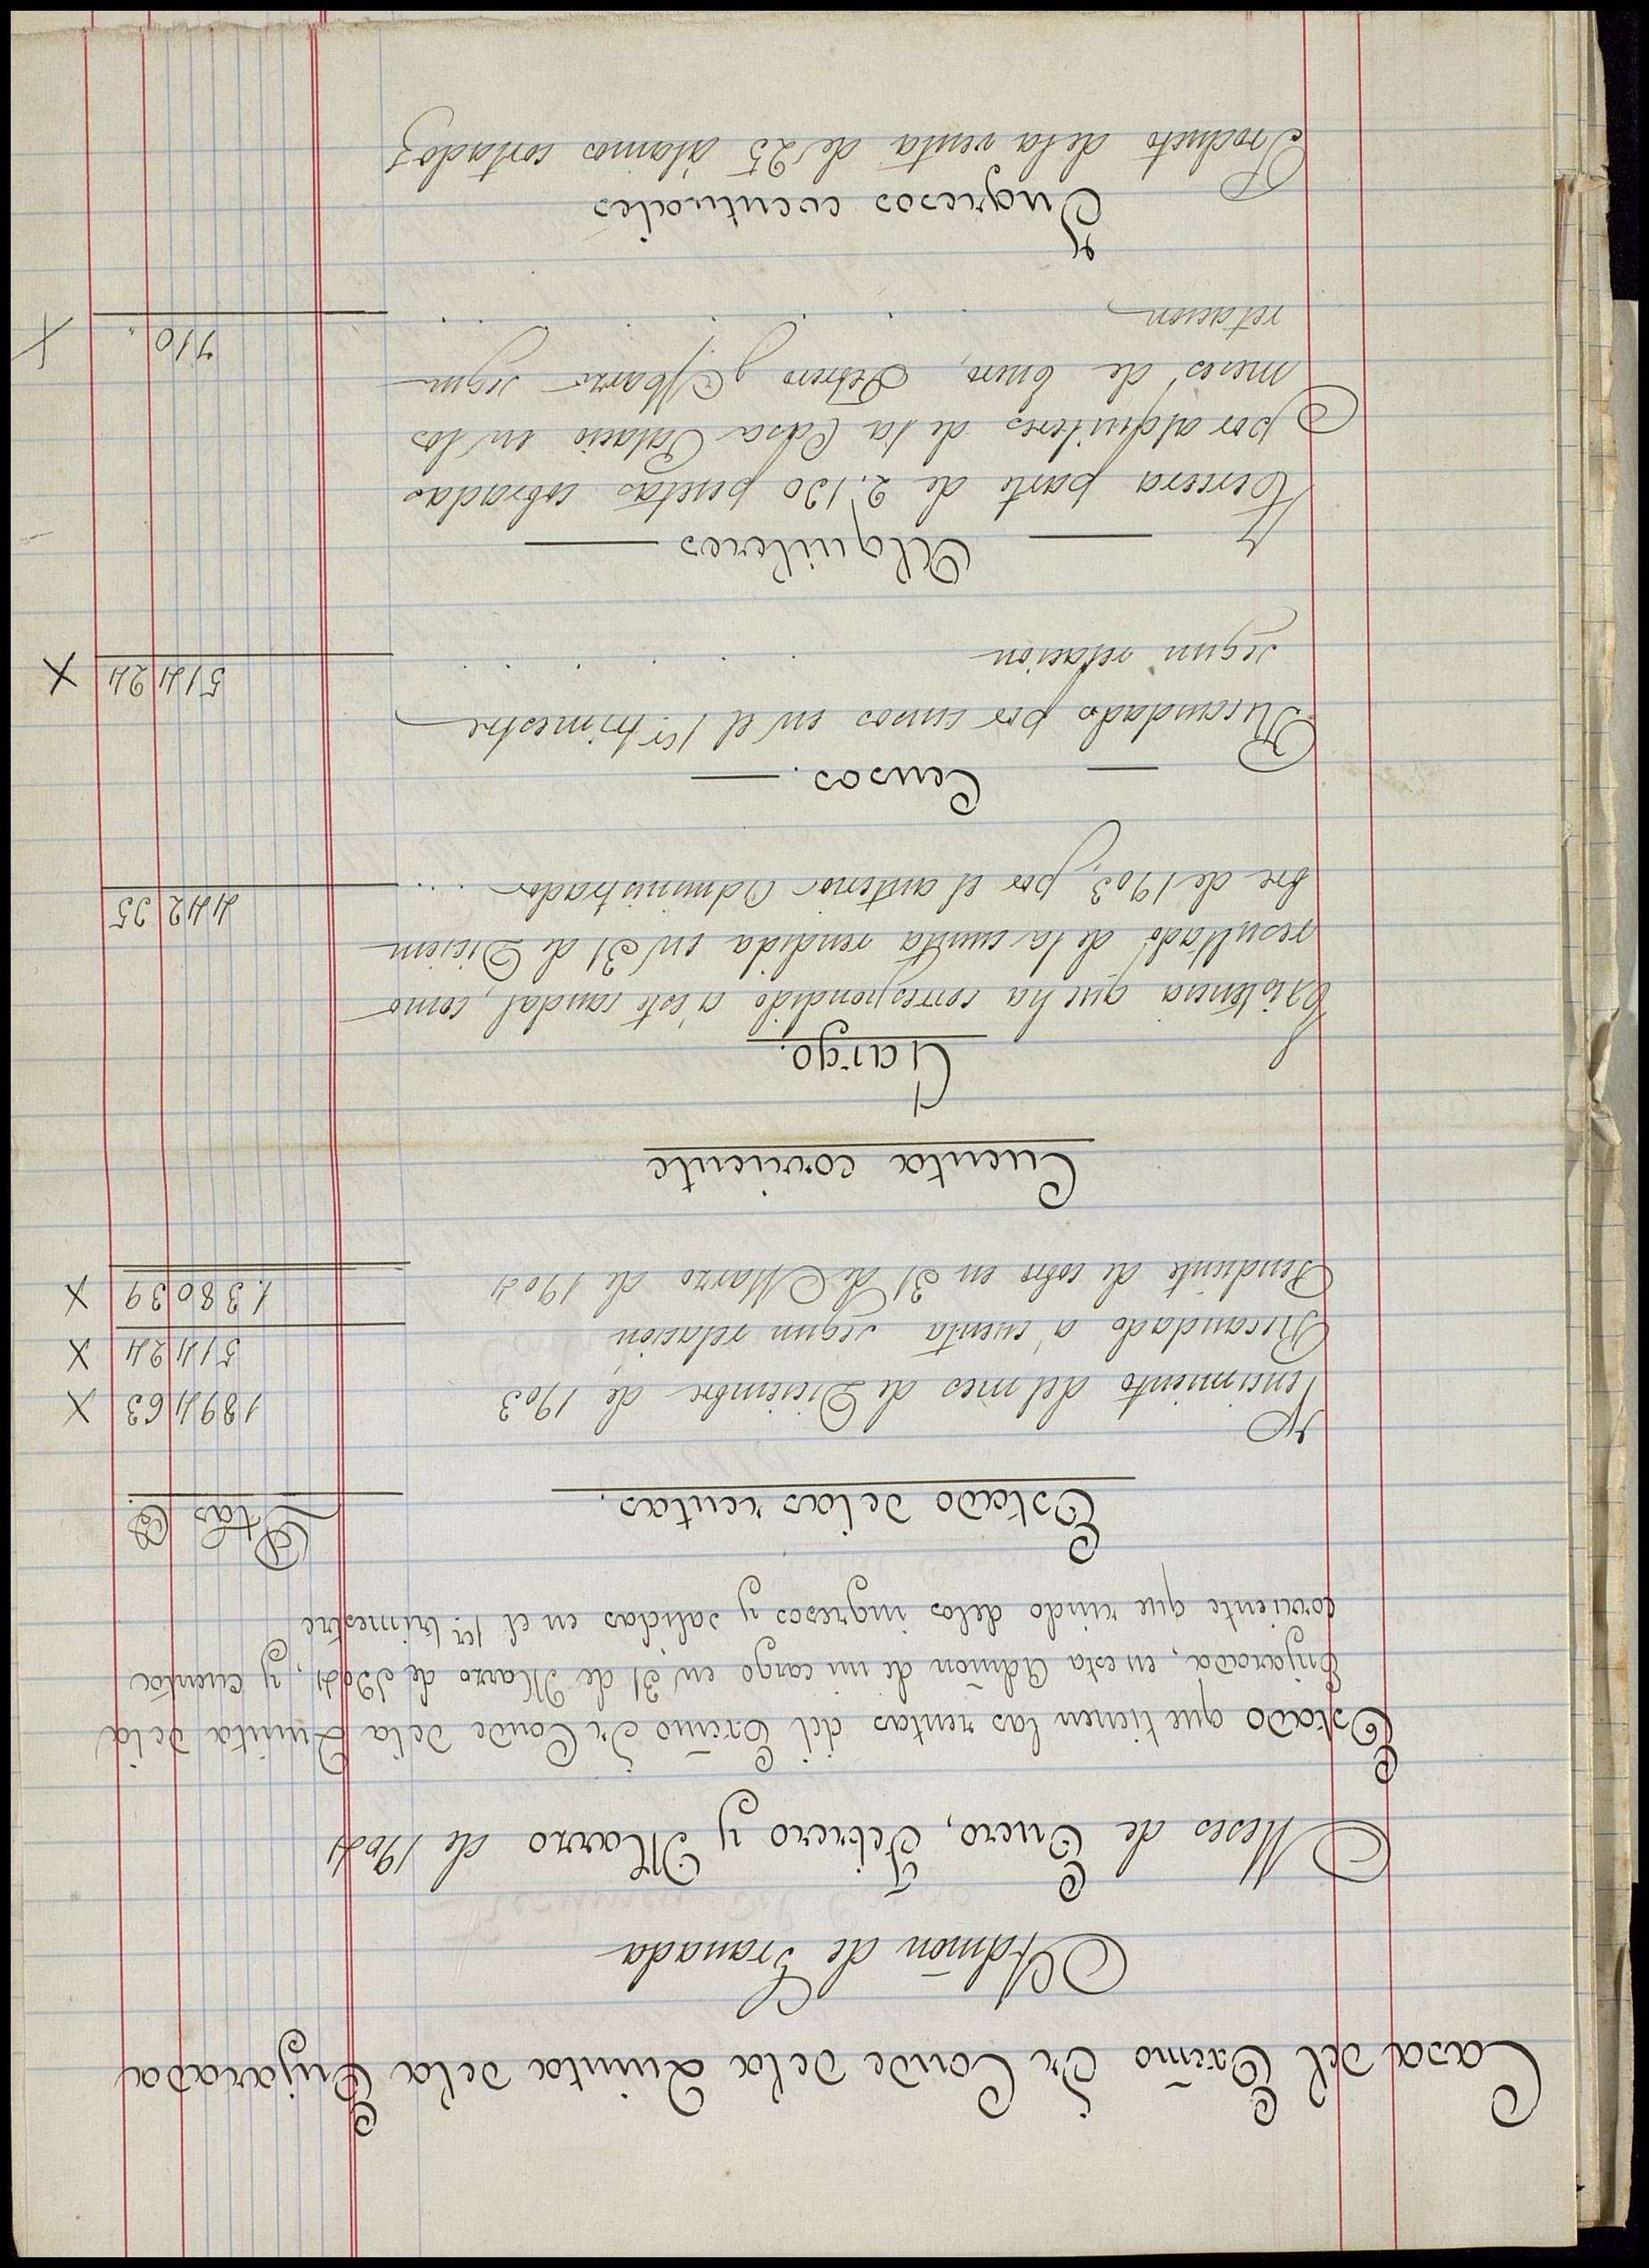 Casa del Exc̃mo Sr Conde de la Quinta de la Enjarada
Admõn de Granada
Meses de Enero, Febrero y Marzo de 1904
Estado que tienen las rentas del Exc̃mo Sr Conde de la Quinta de la
Enjarada, en esta Admõn de mi cargo en 31 de Marzo de 1904, y cuenta
corriente que rindo de los ingresos y salidas en el 1er trimestre
Estado de las rentas. Ptas Cs.
Vencimiento del mes de Diciembre de 1903 1894 63 X
Recaudado a cuenta segun relacion, 514 24 X
Pendiente de cobro en 31 de Marzo de 1904 1.380 39 X
Cuenta corriente
Cargo.
Existencia que ha correspondido a este caudal, como
resultado de la cuenta rendida en 31 de Diciem
bre de 1903, por el anterior Administrador ... 442 35
Censos.
Recaudado por censos en el 1er trimestre
segun relacion . . . . . . 514 24 X
Alquileres
Tercera parte de 2.130 pesetas cobradas
por alquileres de la Casa Palacio en los
meses de Enero, Febrero y Marzo segun
relacion . . . . . . 710 " X
Ingresos eventuales
Producto de la venta de 25 álamos cortados